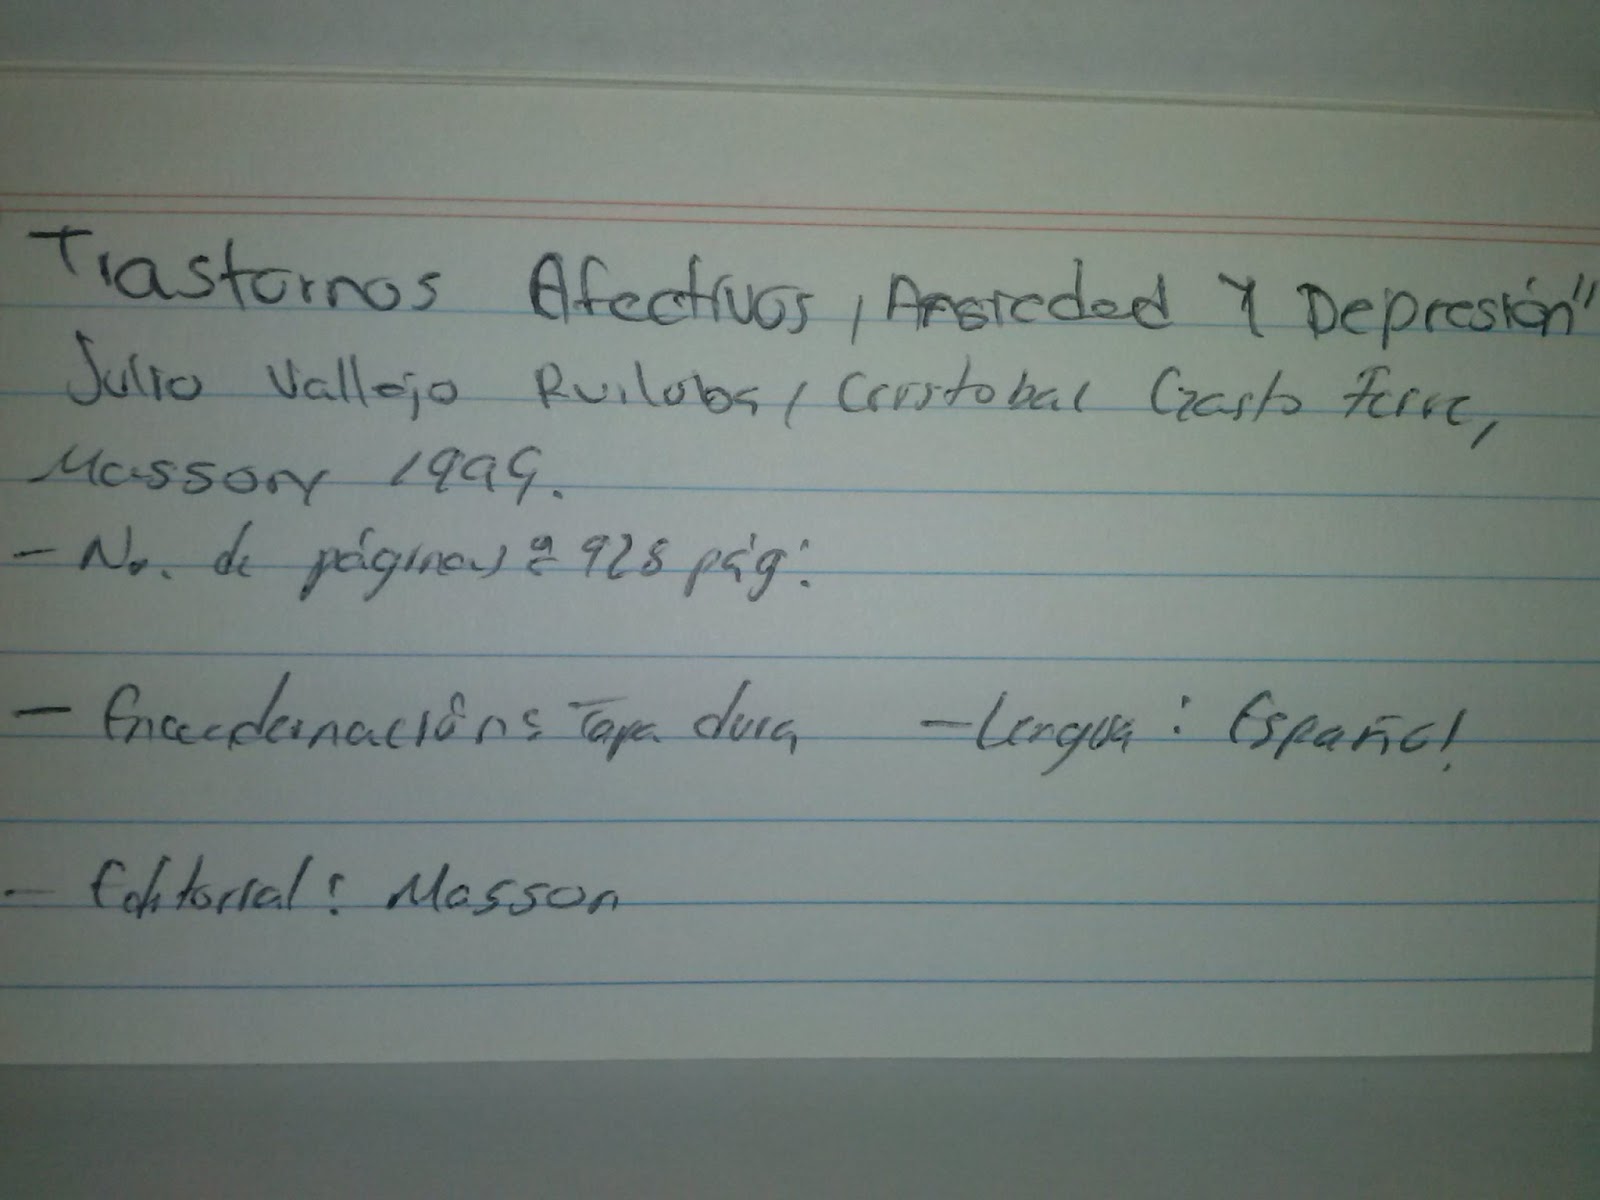 Trastornos Afectivos, Ansiedad Y Depresión"
Julio Vallejo Ruiloba, Cristobal Gasto Ferre,
Masson 1999.
- No. de páginas: 928 pág.
- Encuadernación: Tapa dura - Lengua: Español
- Editorial: Masson